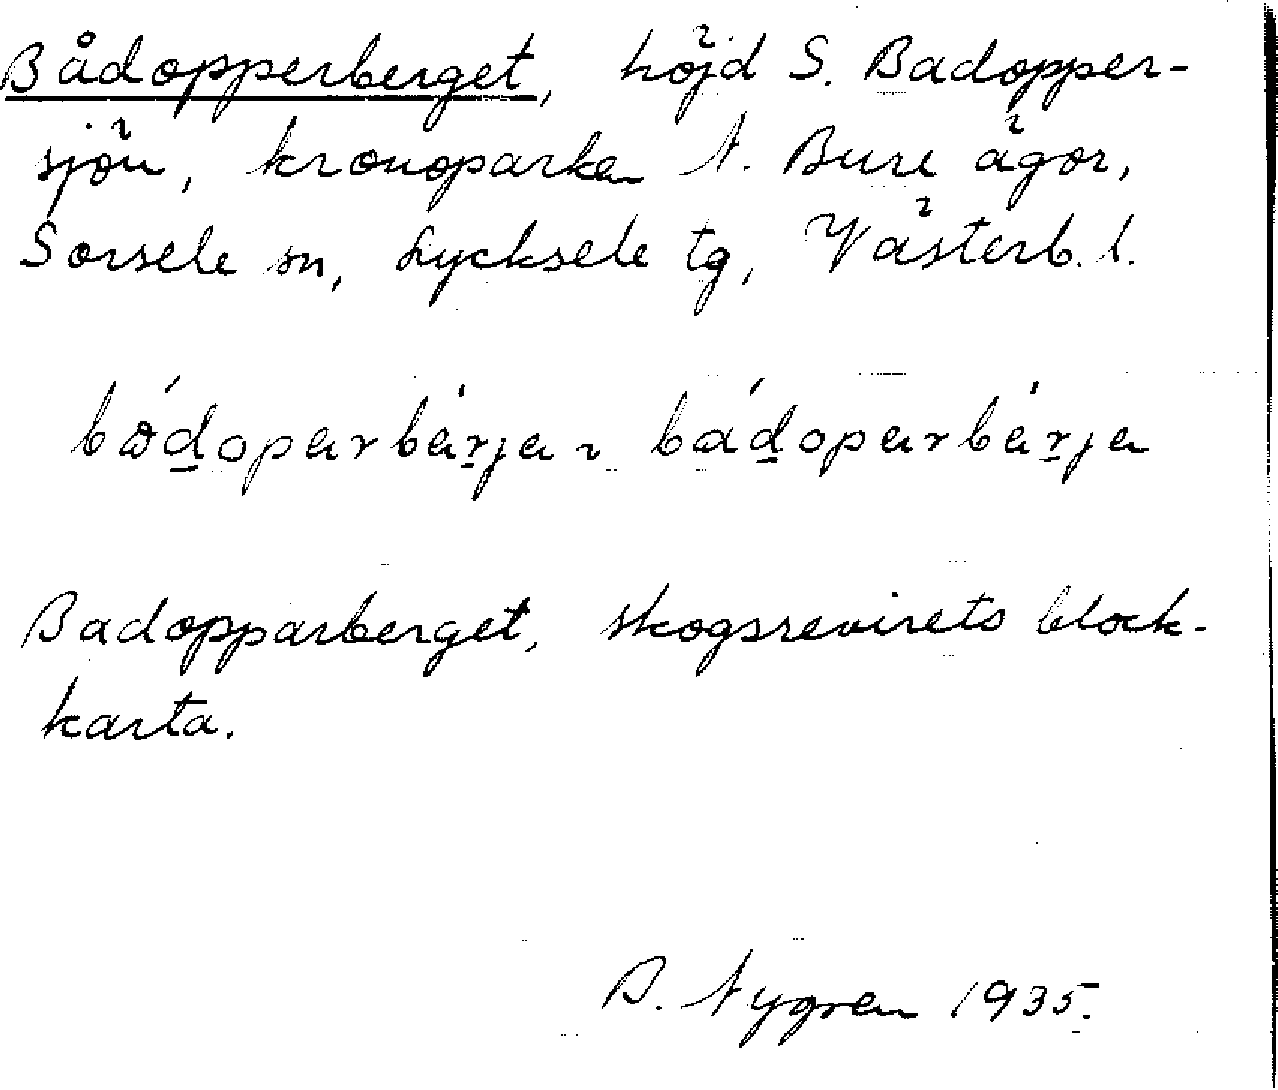 Bådopperberget, höjd S. Badopper-
sjön, kronoparken N. Bure ägor,
Sorsele sn, Lycksele tg, Västerb. l.
bådoparbärja ~ bádoparbärja
Badopparberget, skogsrevirets block-
karta.
A. Nygren 1935.